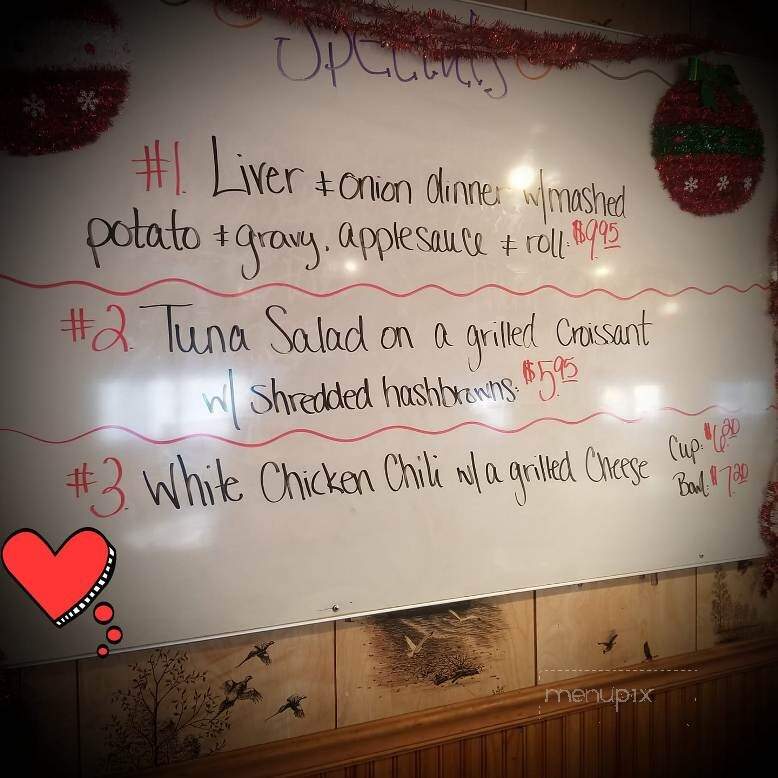 Specials
#1. Liver + onion dinner w/mashed
potato + gravy, applesauce + roll. $9.95
#2. Tuna Salad on a grilled Croissant
w/ shredded hashbrowns. $5.95
#3. White Chicken Chili w/a grilled Cheese
Cup: $6.20
Bowl: $7.20
menupix